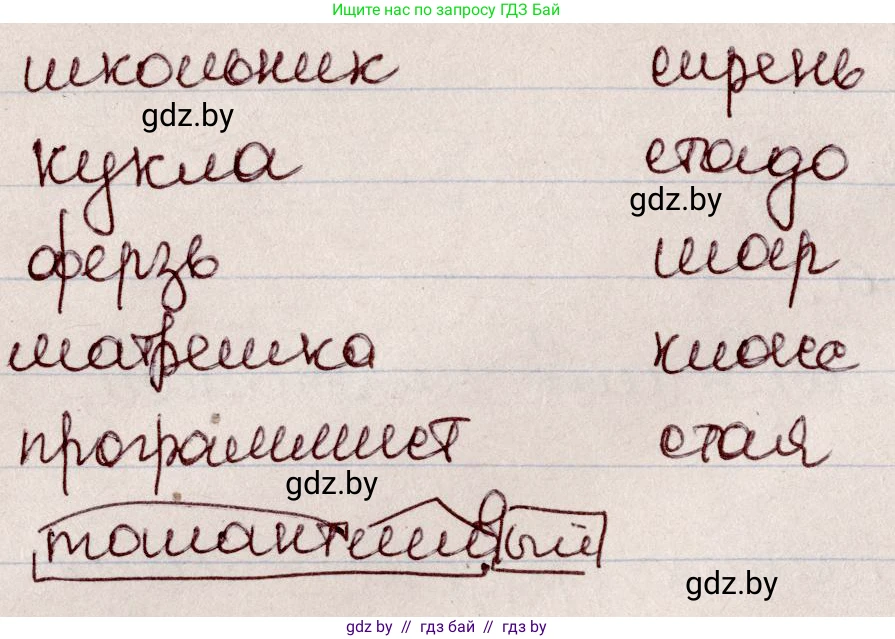 Ищите нас по запросу ГДЗ Бай
школьник сирень
gdz.by
кукла стадо
gdz.by
ферзь шар
матрешка класс
программист стая
gdz.by
талантливый
gdz.by
gdz by // гдз бай // гдз by